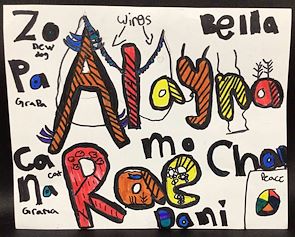 Zo
new
dog
wings
Bella
Pa
GraPa
Alayna
Ca
cat
na
Grana
Rae
mo
Char
Dani
Peace